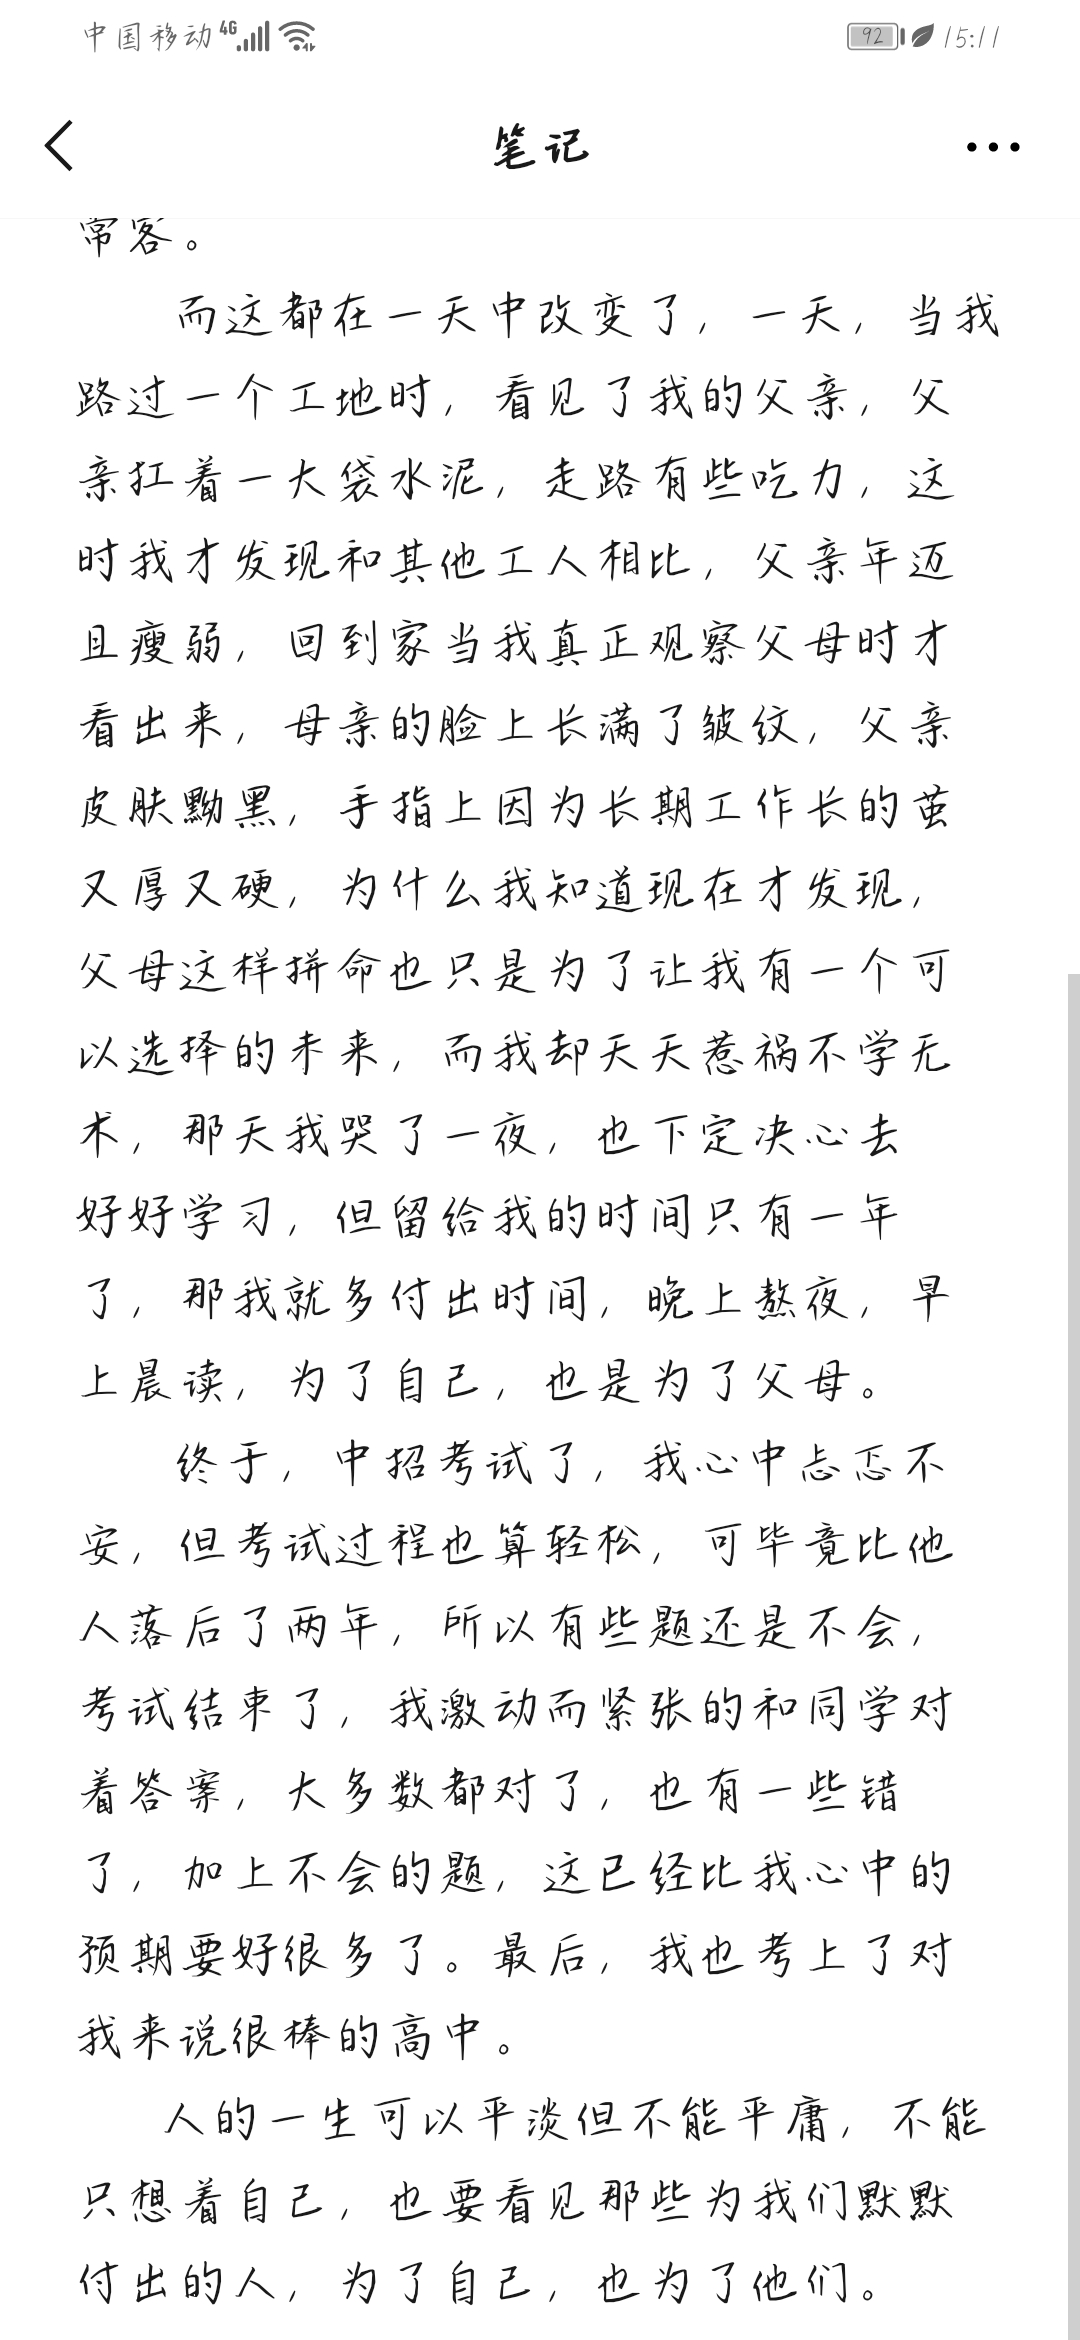 中国移动 4G 92 15:11
笔记
常客。
而这都在一天中改变了，一天，当我
路过一个工地时，看见了我的父亲，父
亲扛着一大袋水泥，走路有些吃力，这
时我才发现和其他工人相比，父亲年迈
且瘦弱，回到家当我真正观察父母时才
看出来，母亲的脸上长满了皱纹，父亲
皮肤黝黑，手指上因为长期工作长的茧
又厚又硬，为什么我知道现在才发现，
父母这样拼命也只是为了让我有一个可
以选择的未来，而我却天天惹祸不学无
术，那天我哭了一夜，也下定决心去
好好学习，但留给我的时间只有一年
了，那我就多付出时间，晚上熬夜，早
上晨读，为了自己，也是为了父母。
终于，中招考试了，我心中忐忑不
安，但考试过程也算轻松，可毕竟比他
人落后了两年，所以有些题还是不会，
考试结束了，我激动而紧张的和同学对
着答案，大多数都对了，也有一些错
了，加上不会的题，这已经比我心中的
预期要好很多了。最后，我也考上了对
我来说很棒的高中。
人的一生可以平淡但不能平庸，不能
只想着自己，也要看见那些为我们默默
付出的人，为了自己，也为了他们。